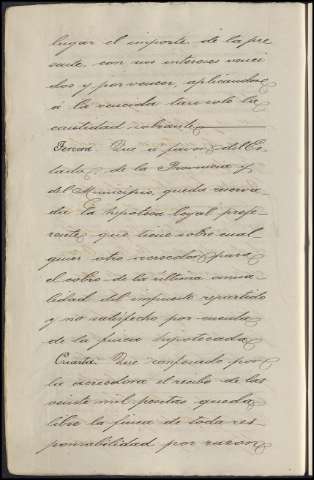 lugar el importe de la pre
sente con sus intereses venci
dos y por vencer, aplicandose
á la vencida tan solo la
cantidad sobrante
Tercera Que á favor del Es-
tado, de la Provincia y
del Municipio, queda reserva-
da la hipoteca legal prefe-
rente que tiene sobre cual-
quier otro acreedor para
el cobro de la última anua-
lidad del impuesto repartido
y no satisfecho por cuenta
de la finca hipotecada
Cuarta Que confesado por
la acreedora el recibo de las
veinte mil pesetas queda
libre la finca de toda res
ponsabilidad por razon